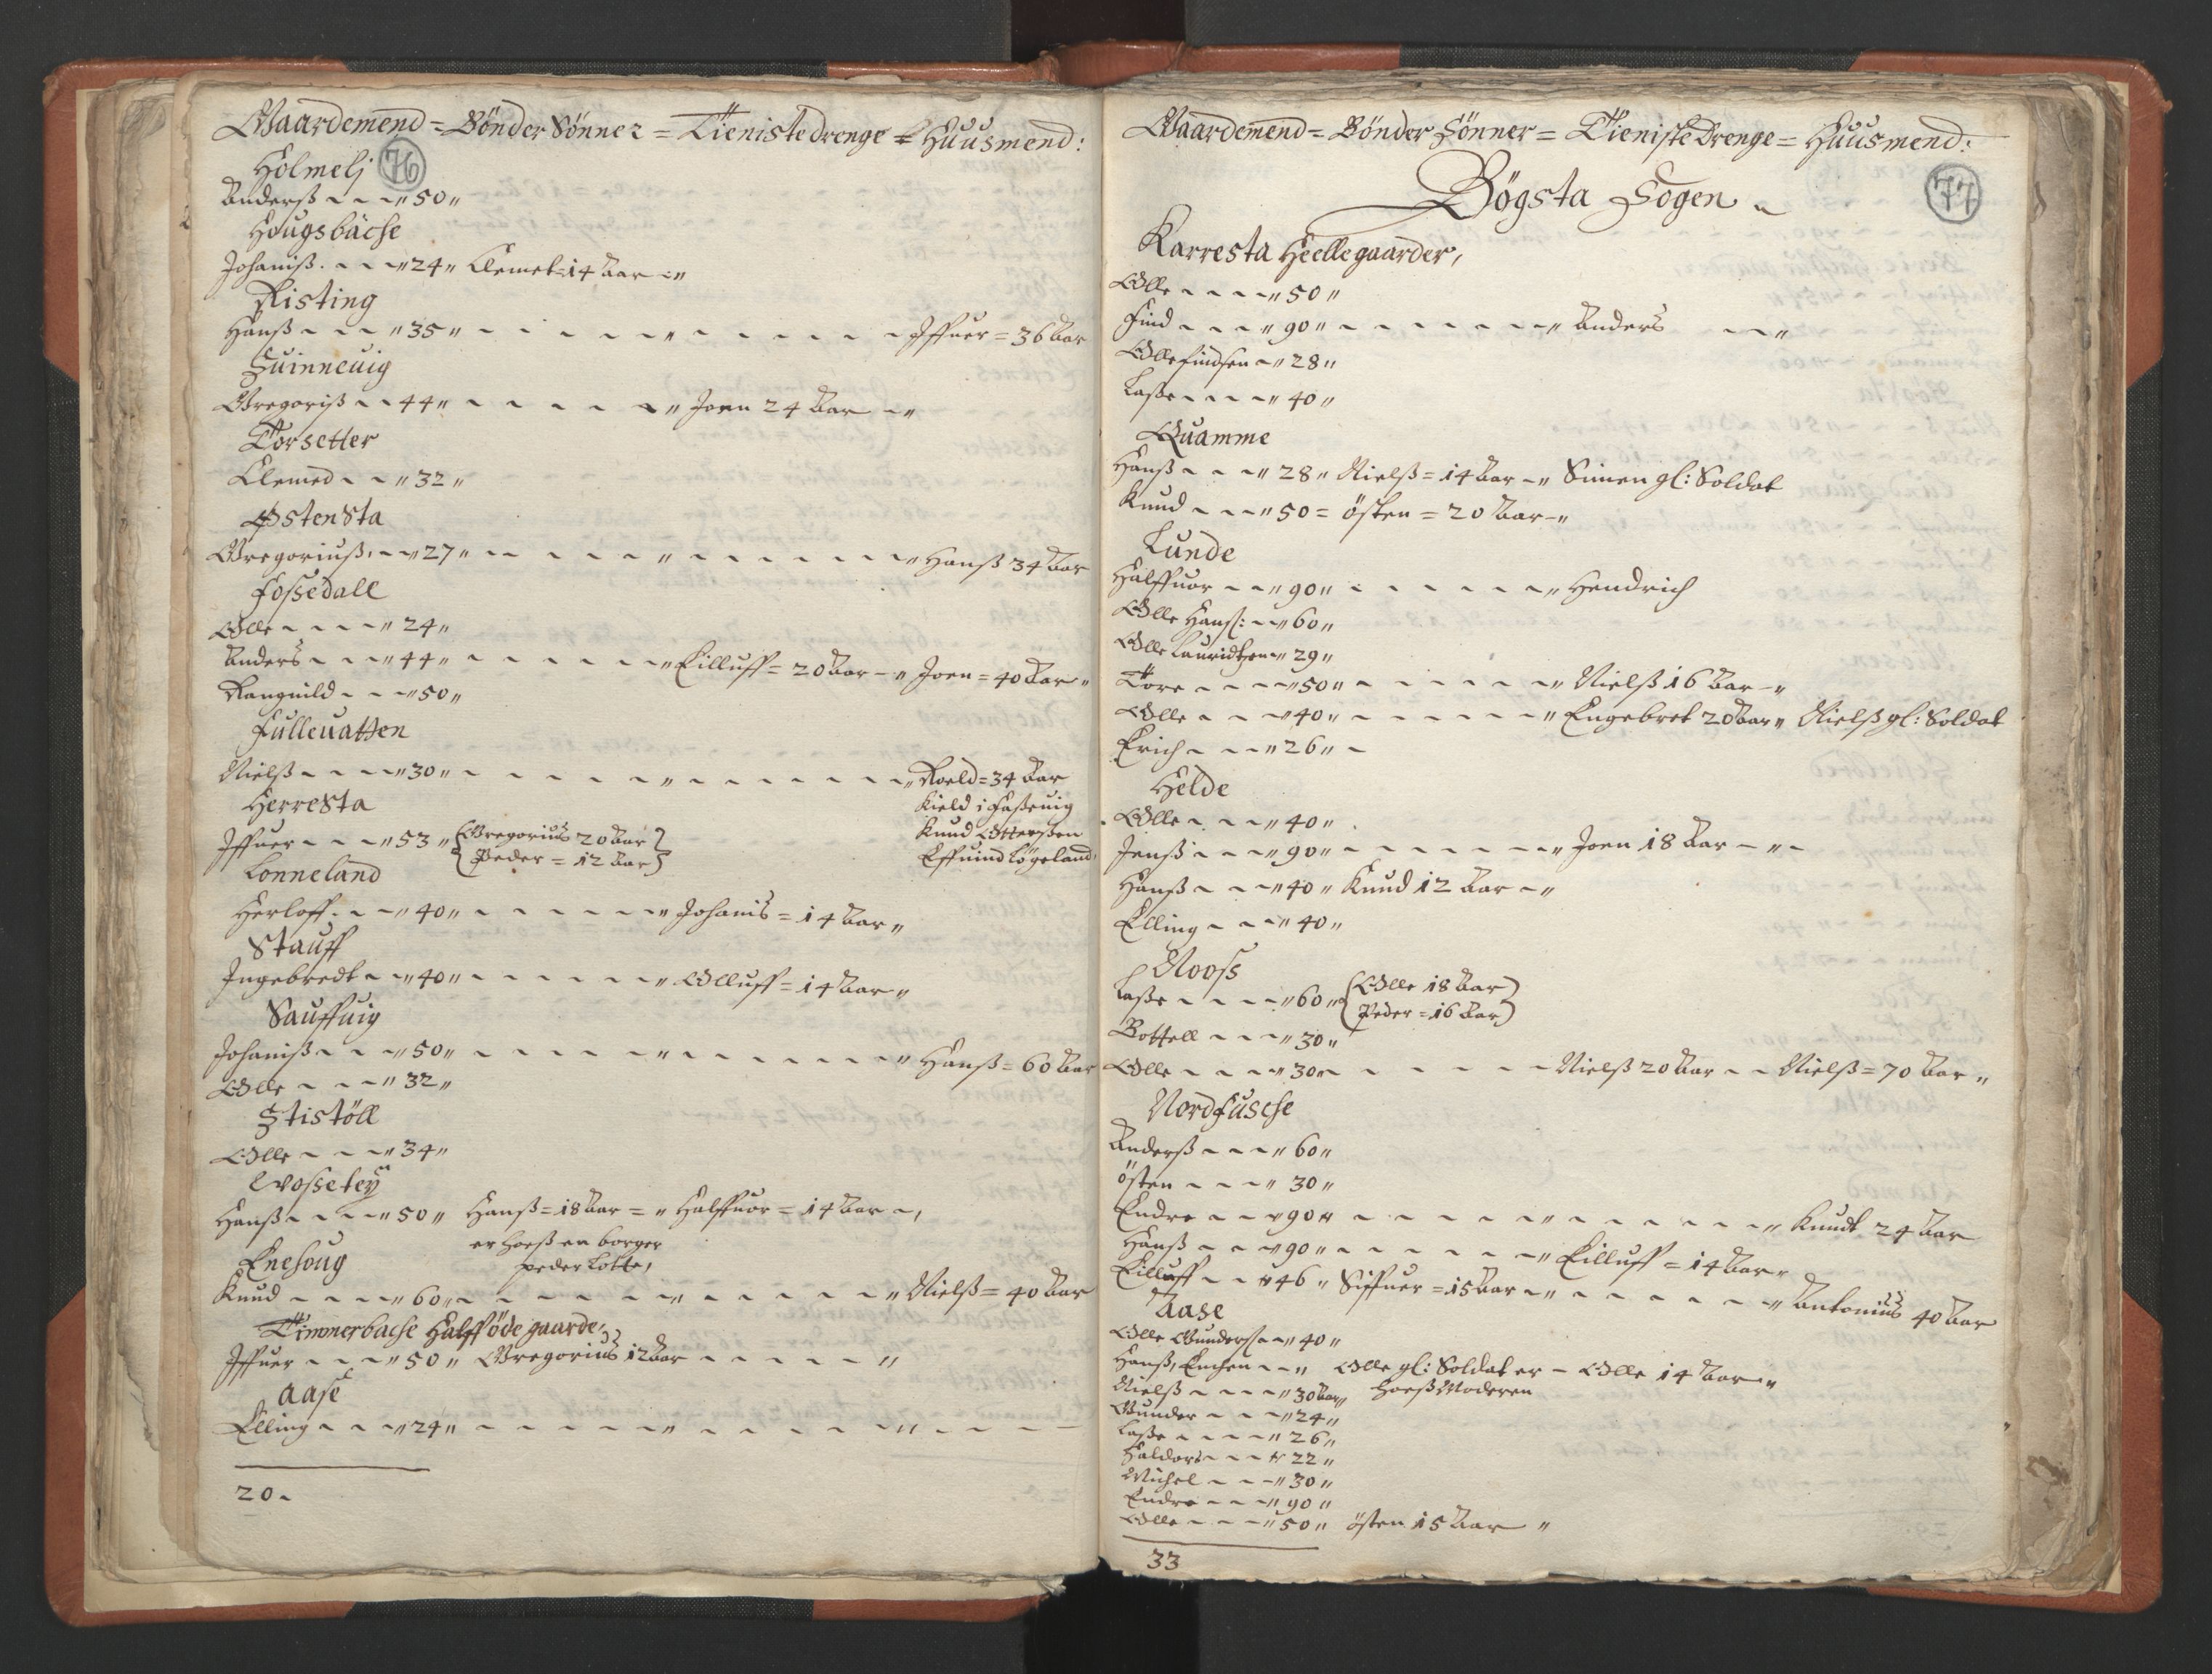 Gaardemend = Bönder Sönner = Tieniste drenge = Huusmend:
76
Holmelj
Anderß - - - 50 "
Hougsbache
Johaniß. - - - " 24 " Clemet = 14 Aar - "
Risting
Hanß - - - " 35 " - - - - - " - - - - - Iffuer = 36 Aar
Suinneuig
Gregoriß - - 44 " - - - - - " Joen 24 Aar - "
Torsetter
Clemed - - " 32 "
Østensta
Gregoriuß. - " 27 " - - - - - " - - - - - " Hanß 34 Aar
Foßedall
Olle - - - - " 24 "
Anders - - - " 44 " - - - - - " Eilluff = 20 Aar - " Joen = 40 Aar "
Rangnild - - - " 50 "
Fulleuatten
Nielß - - - - " 30 " - - - - - " - - - - - " Roeld = 34 Aar
Herresta
Kield i Haßeuig
Knud Ottersen
Iffuer - - - " 53 " { Gregorius 20 Aar }
Effuind Lögeland,
{ Peder = 12 Aar }
Lonneland
Herloff. - - " 40 " - - - - - " Johanis = 14 Aar "
Stauff
Ingebredt - - " 40 " - - - - - " Olluff = 14 Aar "
Sauffuig
Johaniß - - - " 50 " - - - - - " - - - - - " Hanß = 60 Aar
Olle - - - " 32 "
Stistöll
Olle - - - " 34 "
Woßetey
Hanß - - - - " 50 " Hanß = 18 Aar = " Halffuor = 14 Aar -,
er hoeß en borger
Enehoug
peder Lotte,
Knud - - - - " 60 " - - - - - " - - - - - " Nielß = 40 Aar
Timmerbache Halff öde gaarde,
Iffuer - - - " 50 " Gregorius 12 Aar - - - - - "
Aase
Elling - - - " 24 " - - - - - " - - - - - " - - -
20 -
Gaardemend = Bönder Sönner = Tieniste Drenge = Huusmend:
Bögsta Sogen
77
Karresta Heellegaarder,
Olle - - - - " 50 "
Find - - - " 90 " - - - - - " Anders - - "
Olle Findsen - " 28 "
Laße - - - - " 40 "
Quamme
Hanß - - - " 28 " Nielß = 14 Aar - " Simen gl: Soldat
Knud - - - " 50 = östen = 20 Aar - "
Lunde
Halffuor - - " 90 " - - - - - " Hendrich
Olle Hanß: - " 60 "
Olle Lauridtzen " 29 "
Tore - - - - " 50 " - - - - - " Nielß 16 Aar - "
Olle - - - " 40 " - - - - - " Engebret 20 Aar " Nielß gl: Soldat
Erich - - - " 26 " -
Helde
Olle - - - " 40 "
Jenß - - - " 90 " - - - - - " Joen 18 Aar - " -
Hanß - - - " 40 " Knud 12 Aar - "
Elling - - - " 40 "
Nooss
Laße - - - - " 60 " ( Olle 18 Aar )
( Peder = 16 Aar )
Bottell - - - " 30 "
Olle - - - - " 30 " - - - - - Nielß 20 Aar - - Nielß = 70 Aar "
Nordfusche
Anderß - - - " 60 "
östen - - - " 30 "
Endre - - - " 90 " - - - - - " - - - - - " Knudt 24 Aar
Hanß - - - " 90 " - - - - - " Eilluff = 14 Aar "
Eilluff - - " 46 " Siffuer = 15 Aar - " - - - - - " Antonius 40 Aar
Aase
Olle Gunderß - " 40 "
Hanß, Enchen - - " Olle gl: Soldat er - Olle 14 Aar - "
Nielß - - - - " 30 Aar " hoeß Moderen
Gunder - - - " 24 "
Laße - - - - " 26 "
Haldor - - - " 22 "
Michel - - - " 30 "
Endre - - - " 90 "
Olle - - - " 50 " östen 15 Aar "
33